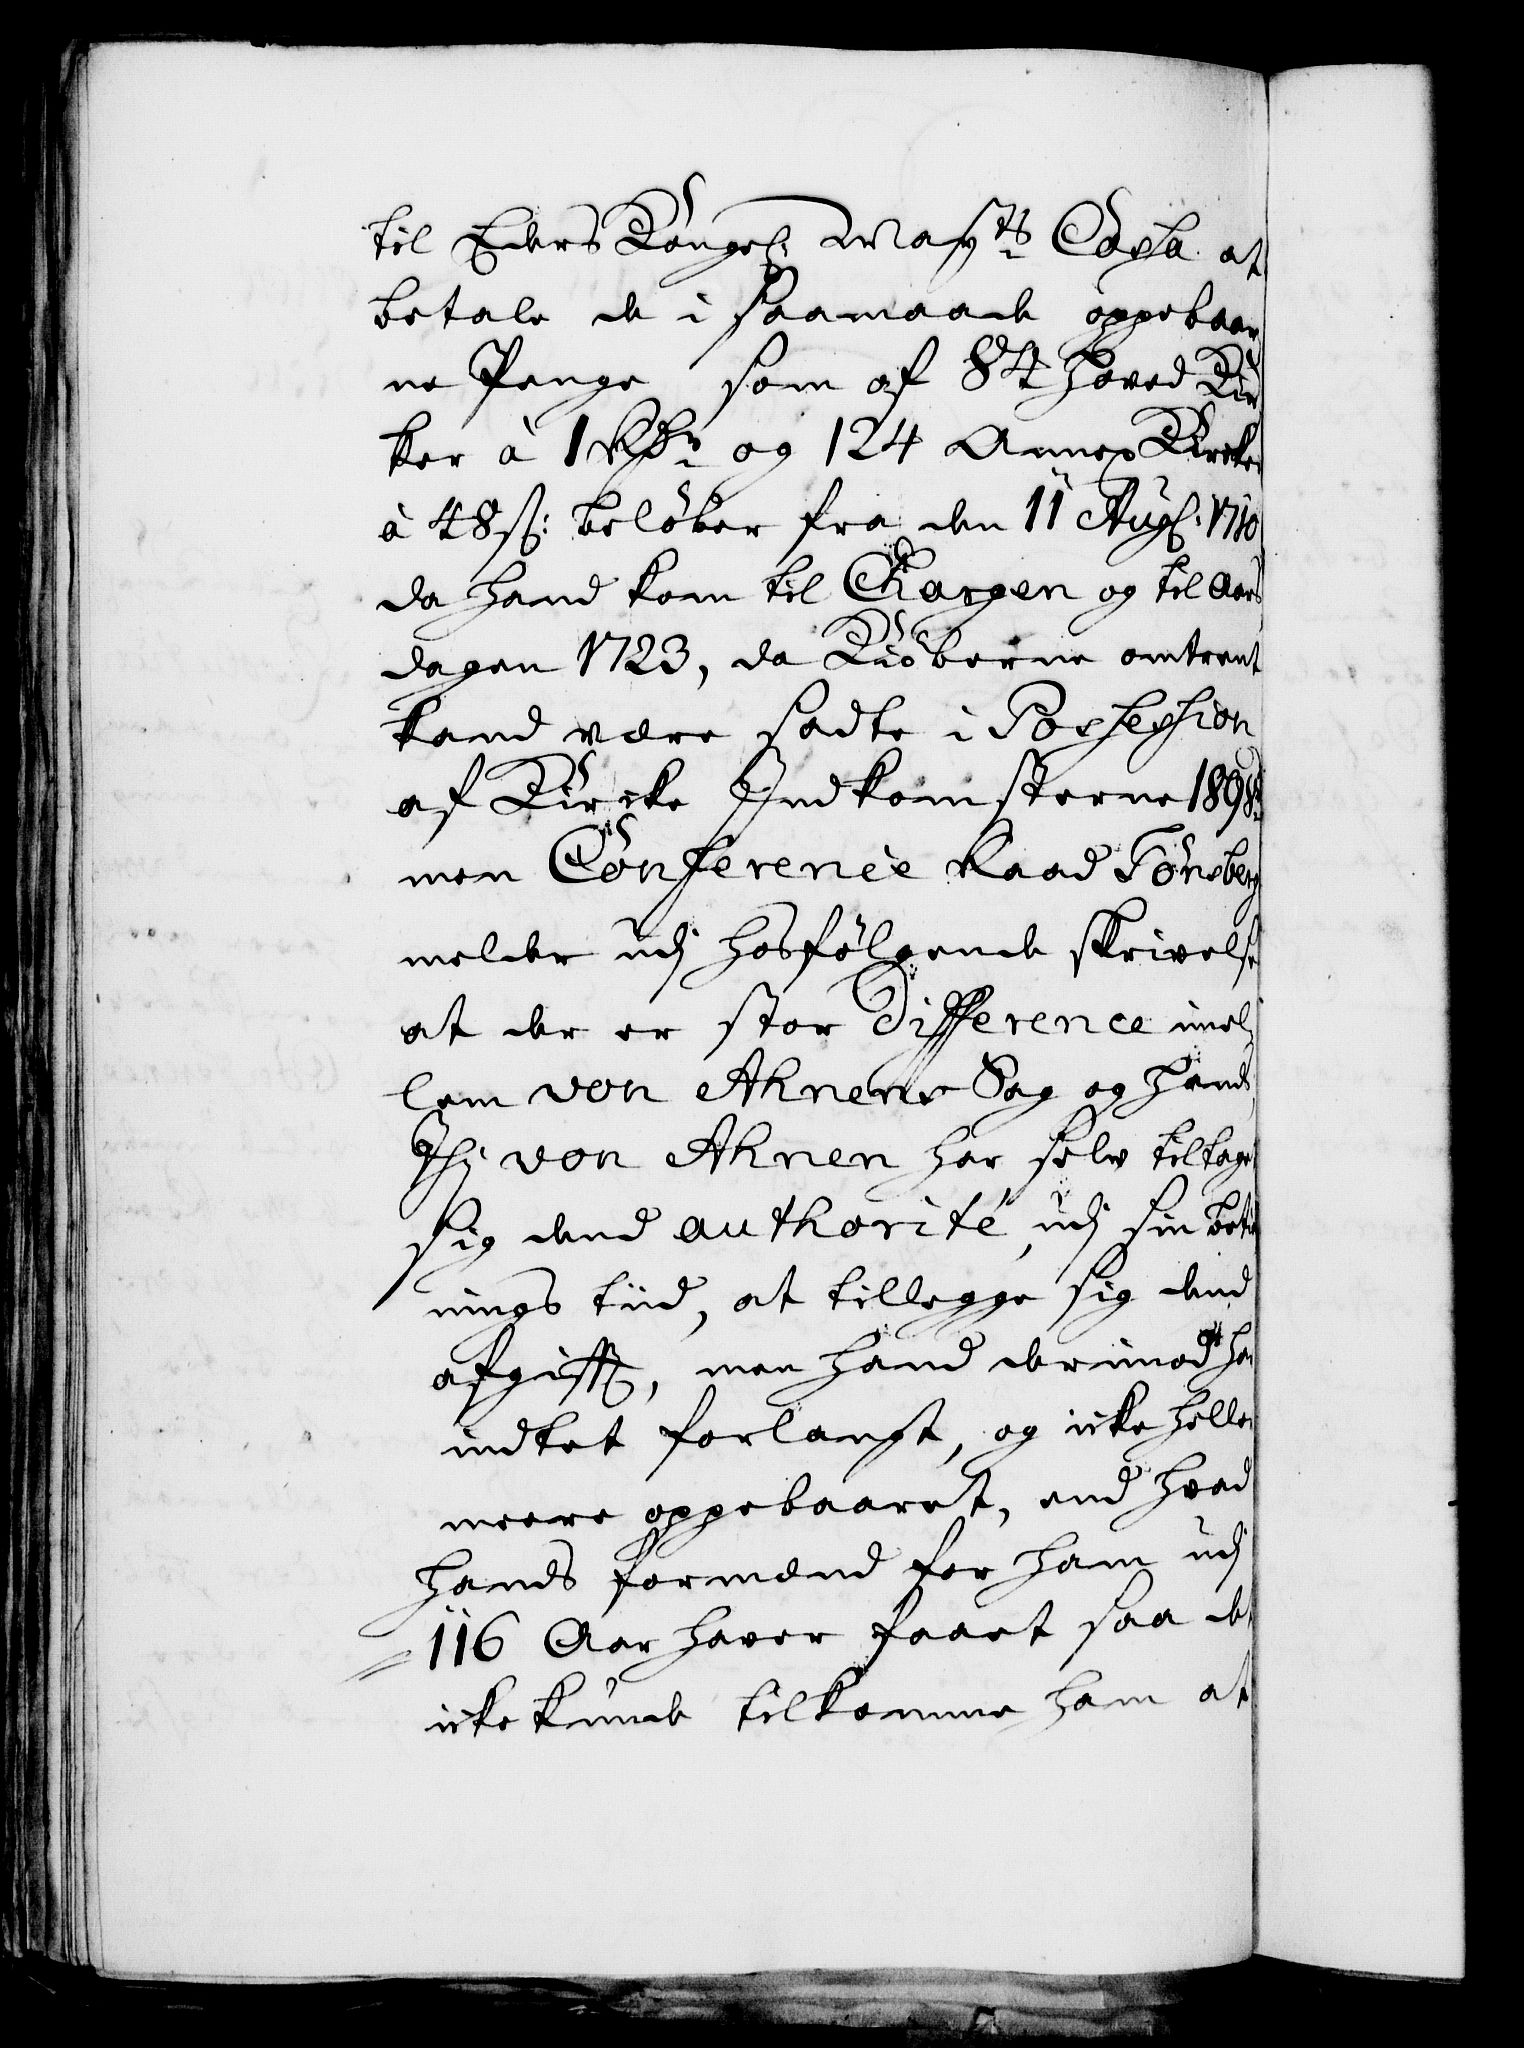 til Eders Kongel: Mayts Cassa at
betale de i saamaade oppebaar
ne Penge som af 84 hoved Kir
ker à 1 Rdr og 124 Annex Kircker
à 48 s: beløber fra den 11 Aug: 1710
da hand kom til Chargen og til Aars
dagen 1723, da Kiøberne omtrent
kand være sadte i Possession
af Kircke Indkomsterne
men Conference Raad Tønsberg
melder udj hosfølgende skrivelse
at der er stor Difference imel
lem von Ahnens Sag og hands
Thj von Ahnen har selv tiltaget
sig dend authorité, udj sin betie
nings tiid, at tillegge sig dend
afgifft, men hand derimod har
indtet forlangt, og icke heller
meere oppebaaret, end hvad
hands formænd for ham udj
116 Aar haver faaet saa det
icke kunde tilkomme ham at